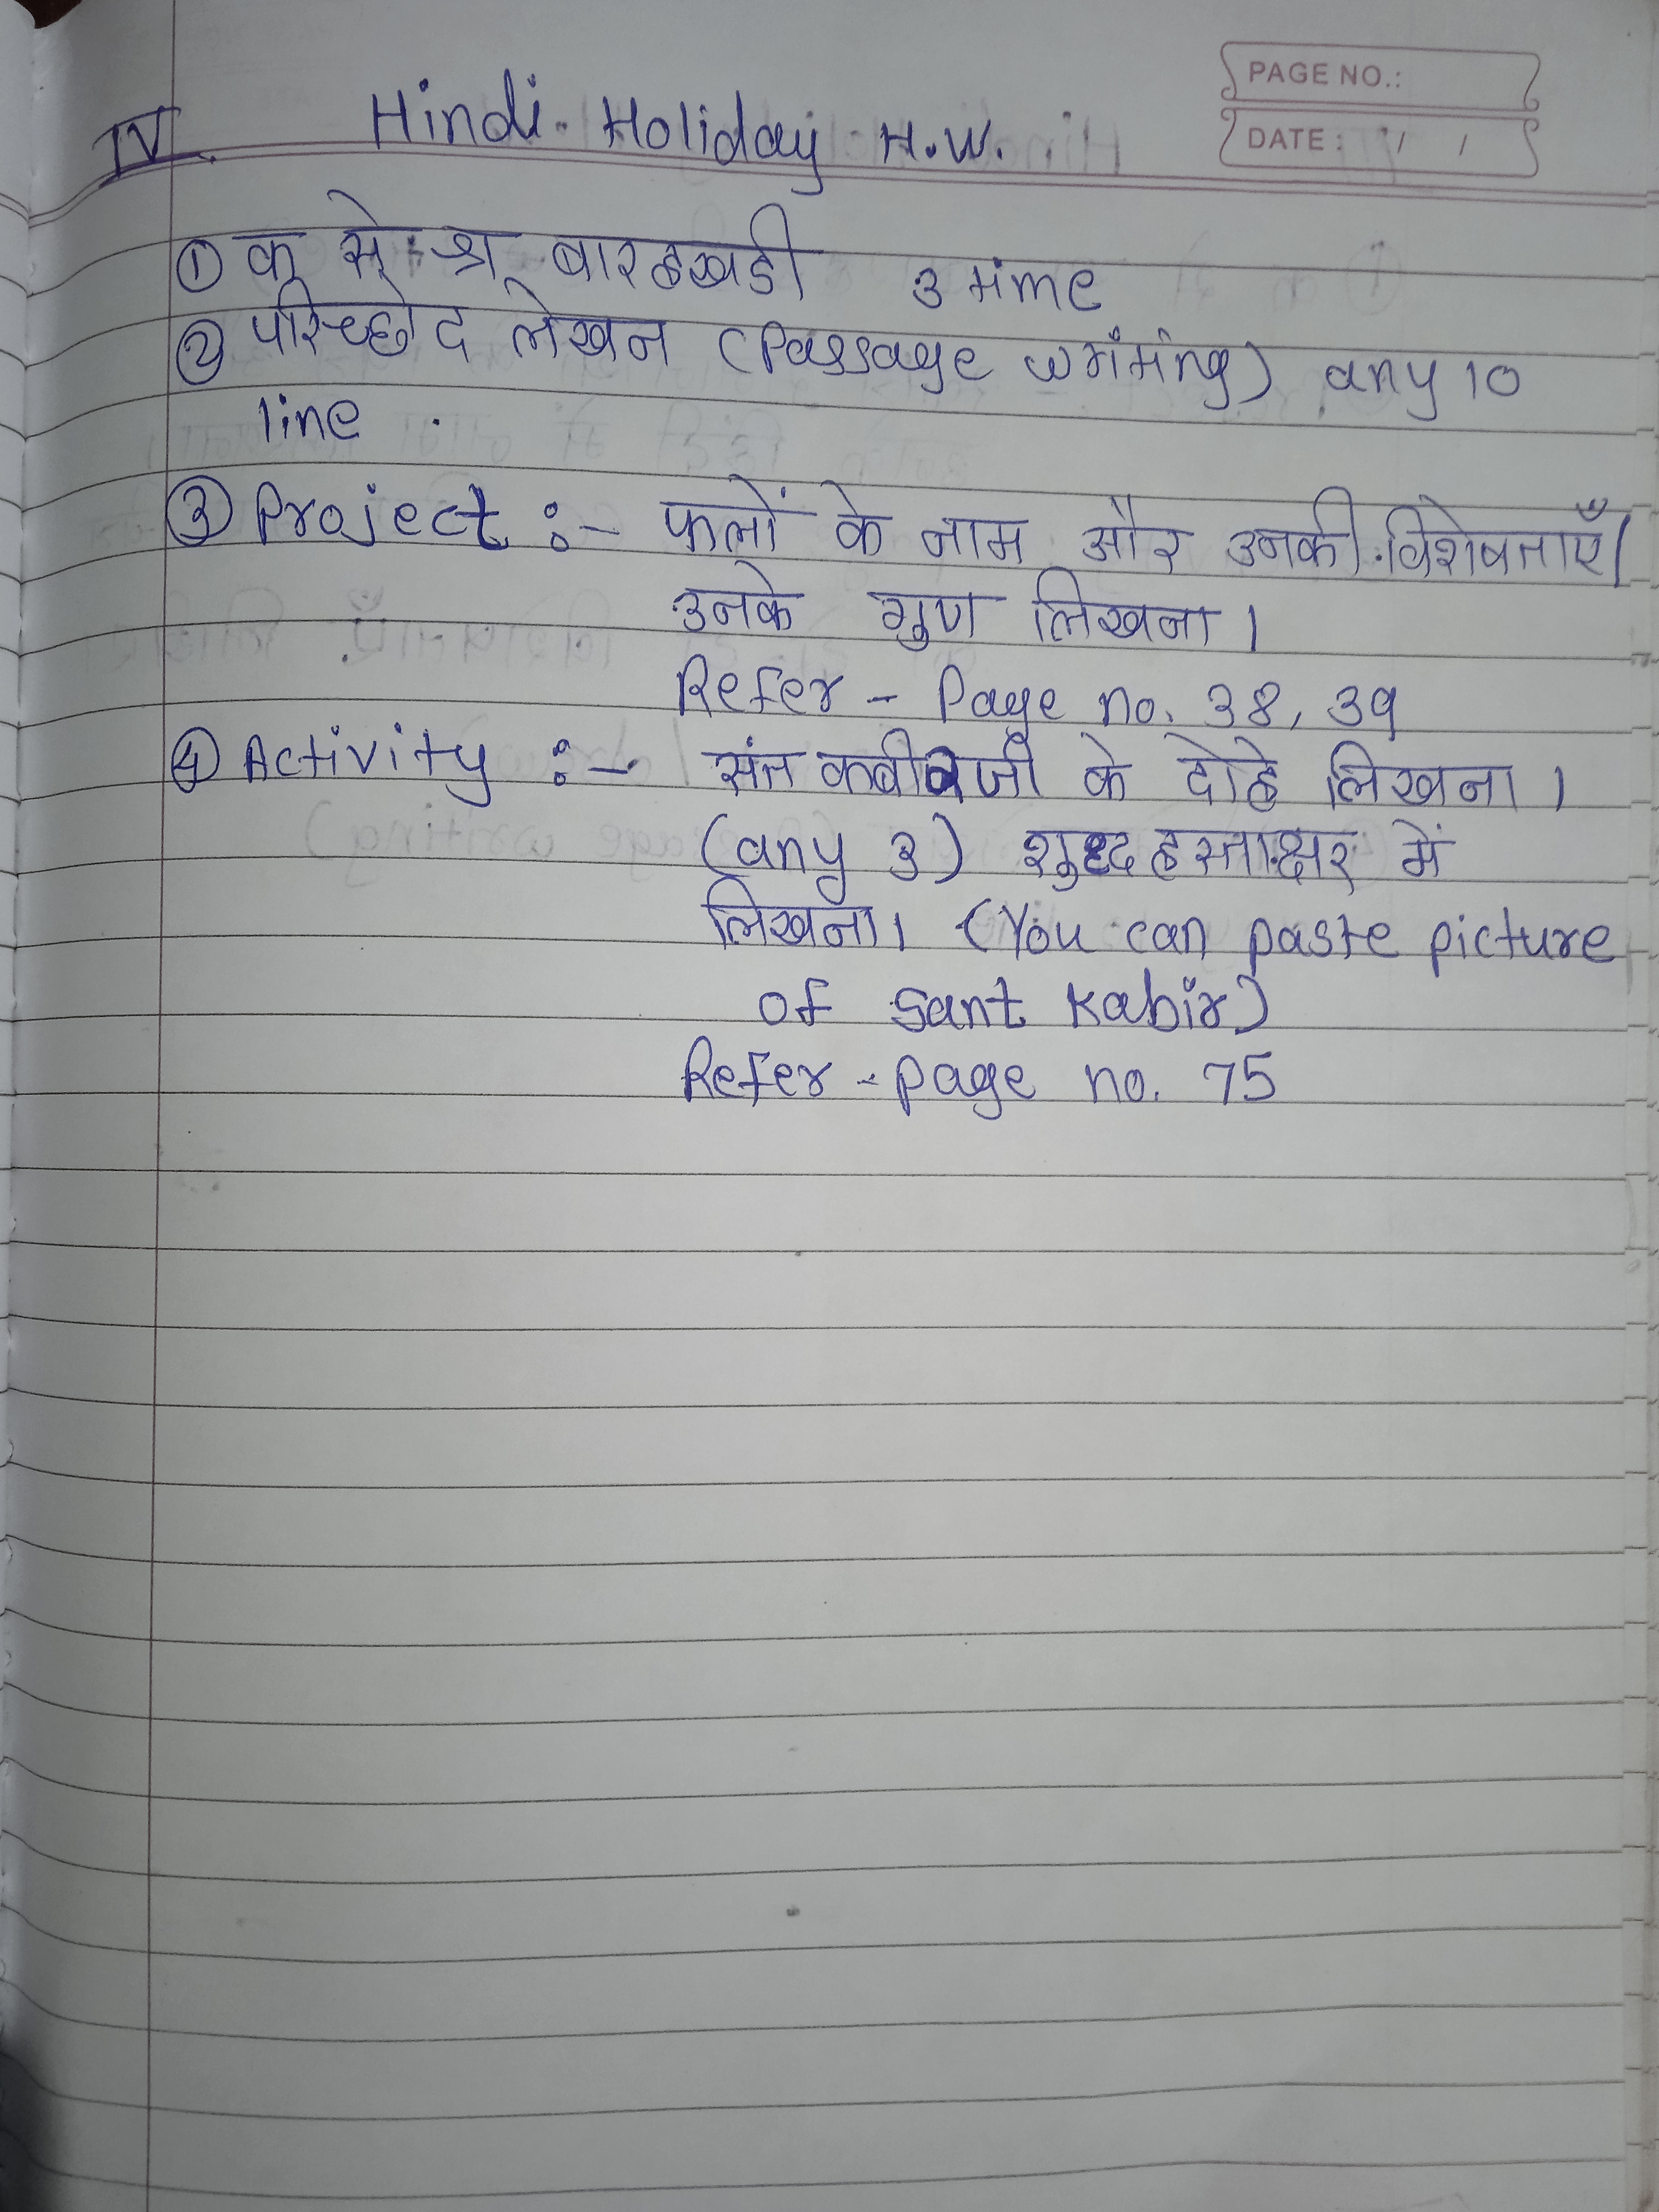 PAGE NO.:
DATE : / /
IV Hindi Holiday H.W.
① क से श्र बारहखडी 3 time
② परिच्छेद लेखन (Passage writing) any 10
line .
③ Project :- फलों के नाम और उनकी विशेषताएँ/
उनके गुण लिखना ।
Refer - Page no. 38, 39
④ Activity :- संत कबीरजी के दोहे लिखना ।
(any 3) शुद्ध हस्ताक्षर में
लिखना। (You can paste picture
of sant Kabir)
Refer - page no. 75